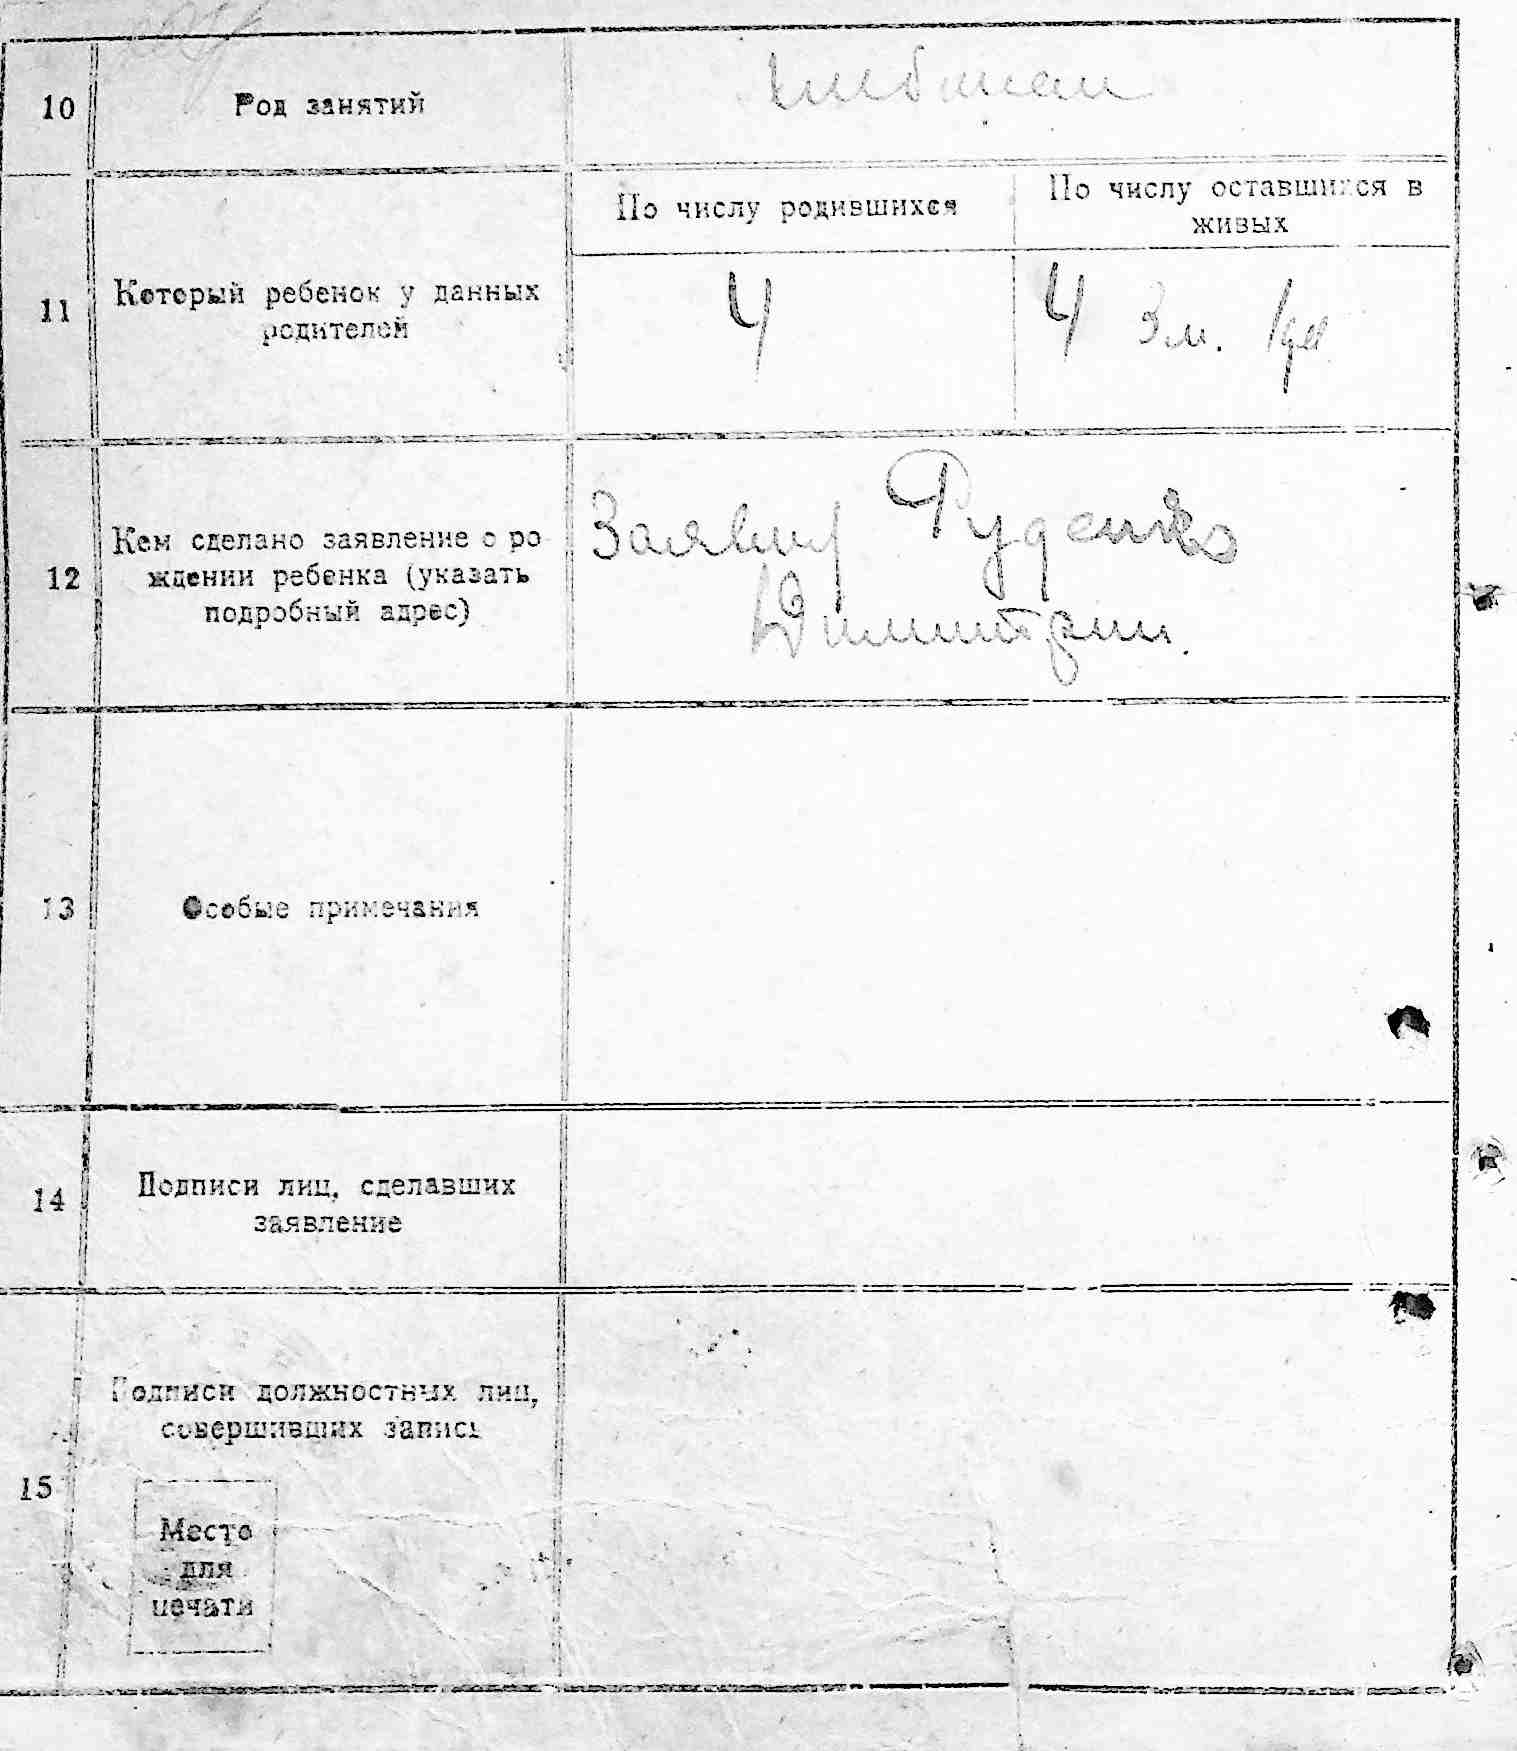 10
Род занятий
хлебопаш
11
Который ребенок у данных
родителей
По числу родившихся
По числу оставшихся в
живых
4
4 3 м. 1
12
Кем сделано заявление о ро
ждении ребенка (указать
подробный адрес)
Руденко
Димитрий.
13
Особые примечания
14
Подписи лиц, сделавших
заявление
15
Подписи должностных лиц,
совершивших запись
Место
для
печати